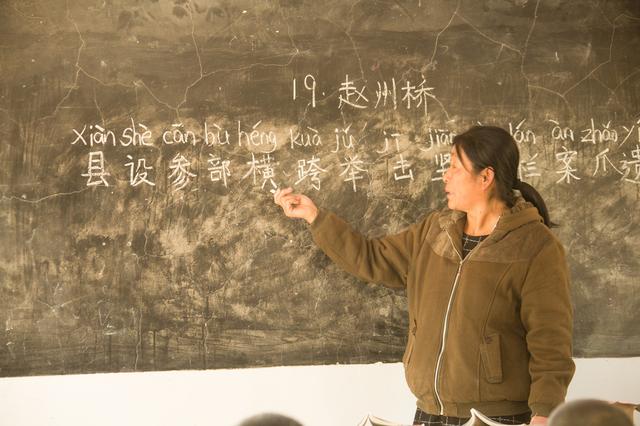 19. 赵州桥
xiàn shè cān bù héng kuà jǔ jī lán àn zhǎo
县 设 参 部 横 跨 举 击 案 爪 遗